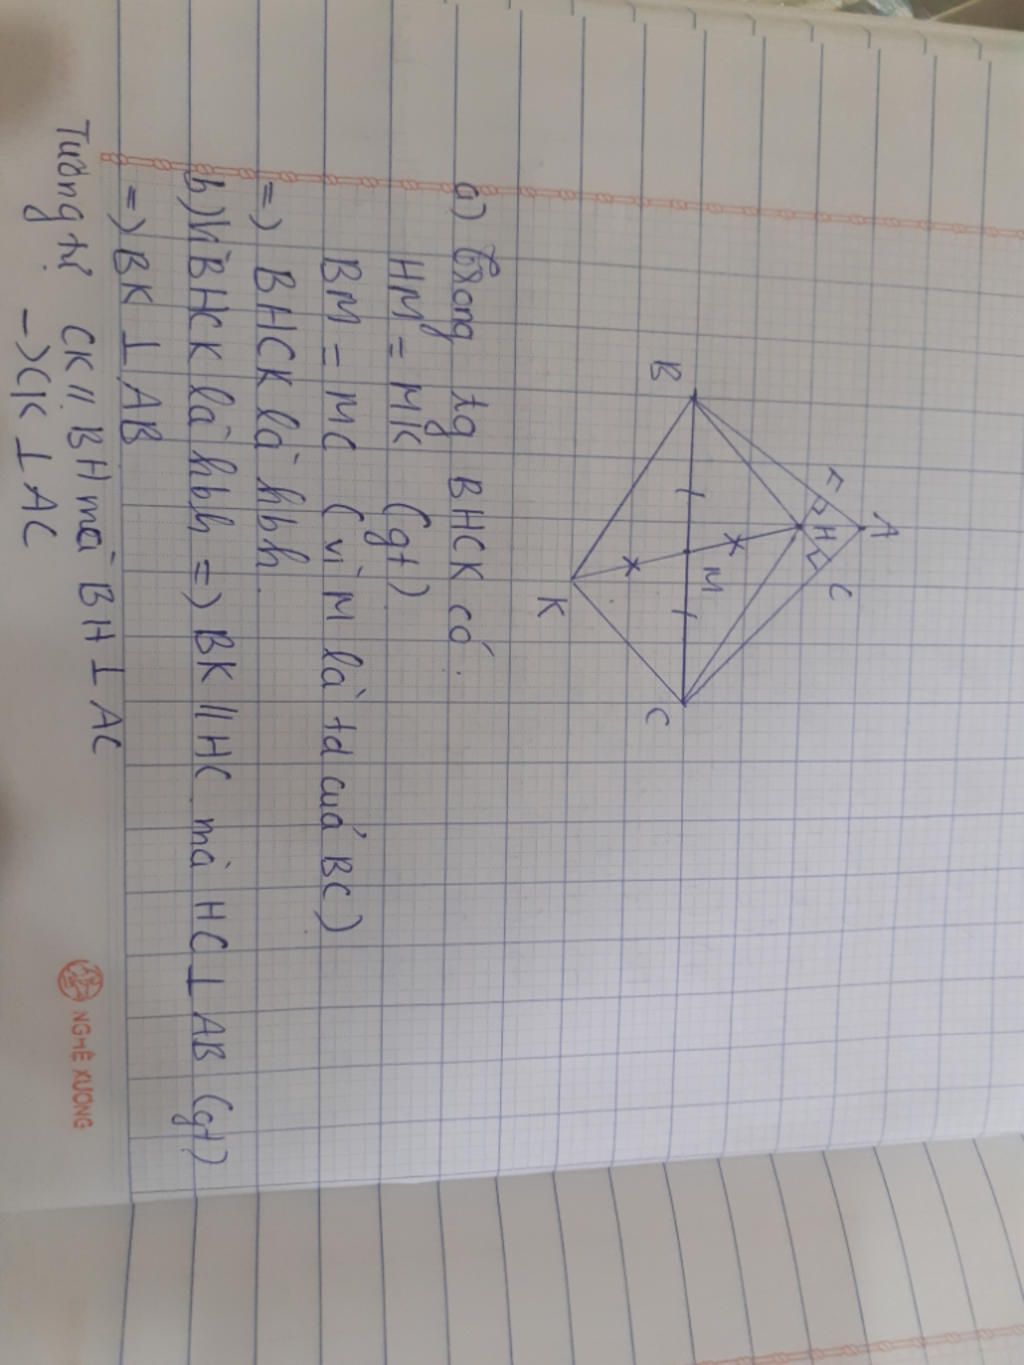 A
F
C
H
B
M
C
K
a) Trong tg BHCK có:
HM = MK (gt)
BM = MC (vì M là td của BC)
=) BHCK là hbh.
b) Vì BHCK là hbh =) BK // HC mà HC ⊥ AB (gt)
=) BK ⊥ AB
Tương tự CK // BH mà BH ⊥ AC
-) CK ⊥ AC
NGHÊ XUONG